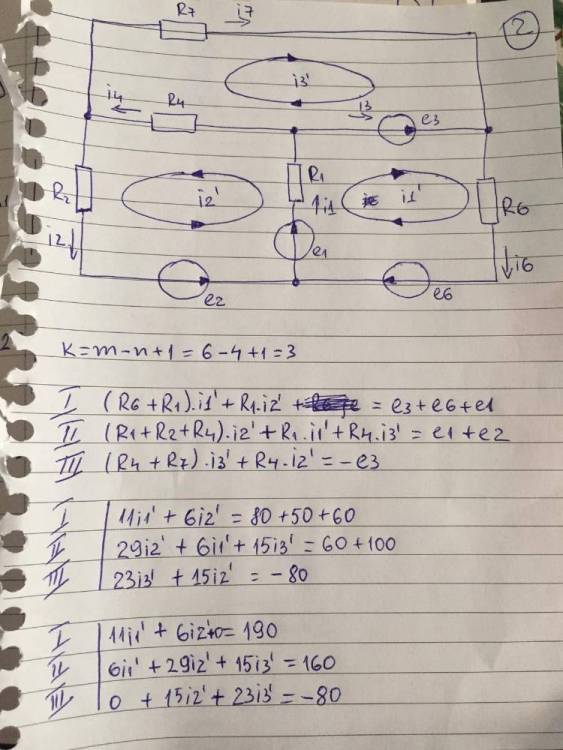 R7 i7 2
i3'
i4 R4 i3 e3
R2 i2' R1 i1 i1' R6
i2 e1 i6
e2 e6
2
K=m-n+1=6-4+1=3
I (R6+R1).i1'+R1.i2'+ = e3+e6+e1
II (R1+R2+R4).i2'+R1.i1'+R4.i3'=e1+e2
III (R4+R7).i3'+R4.i2'=-e3
I 11i1'+6i2'=80+50+60
II 29i2'+6i1'+15i3'=60+100
III 23i3'+15i2'=-80
I 11i1'+6i2'+0=190
II 6i1'+29i2'+15i3'=160
III 0+15i2'+23i3'=-80